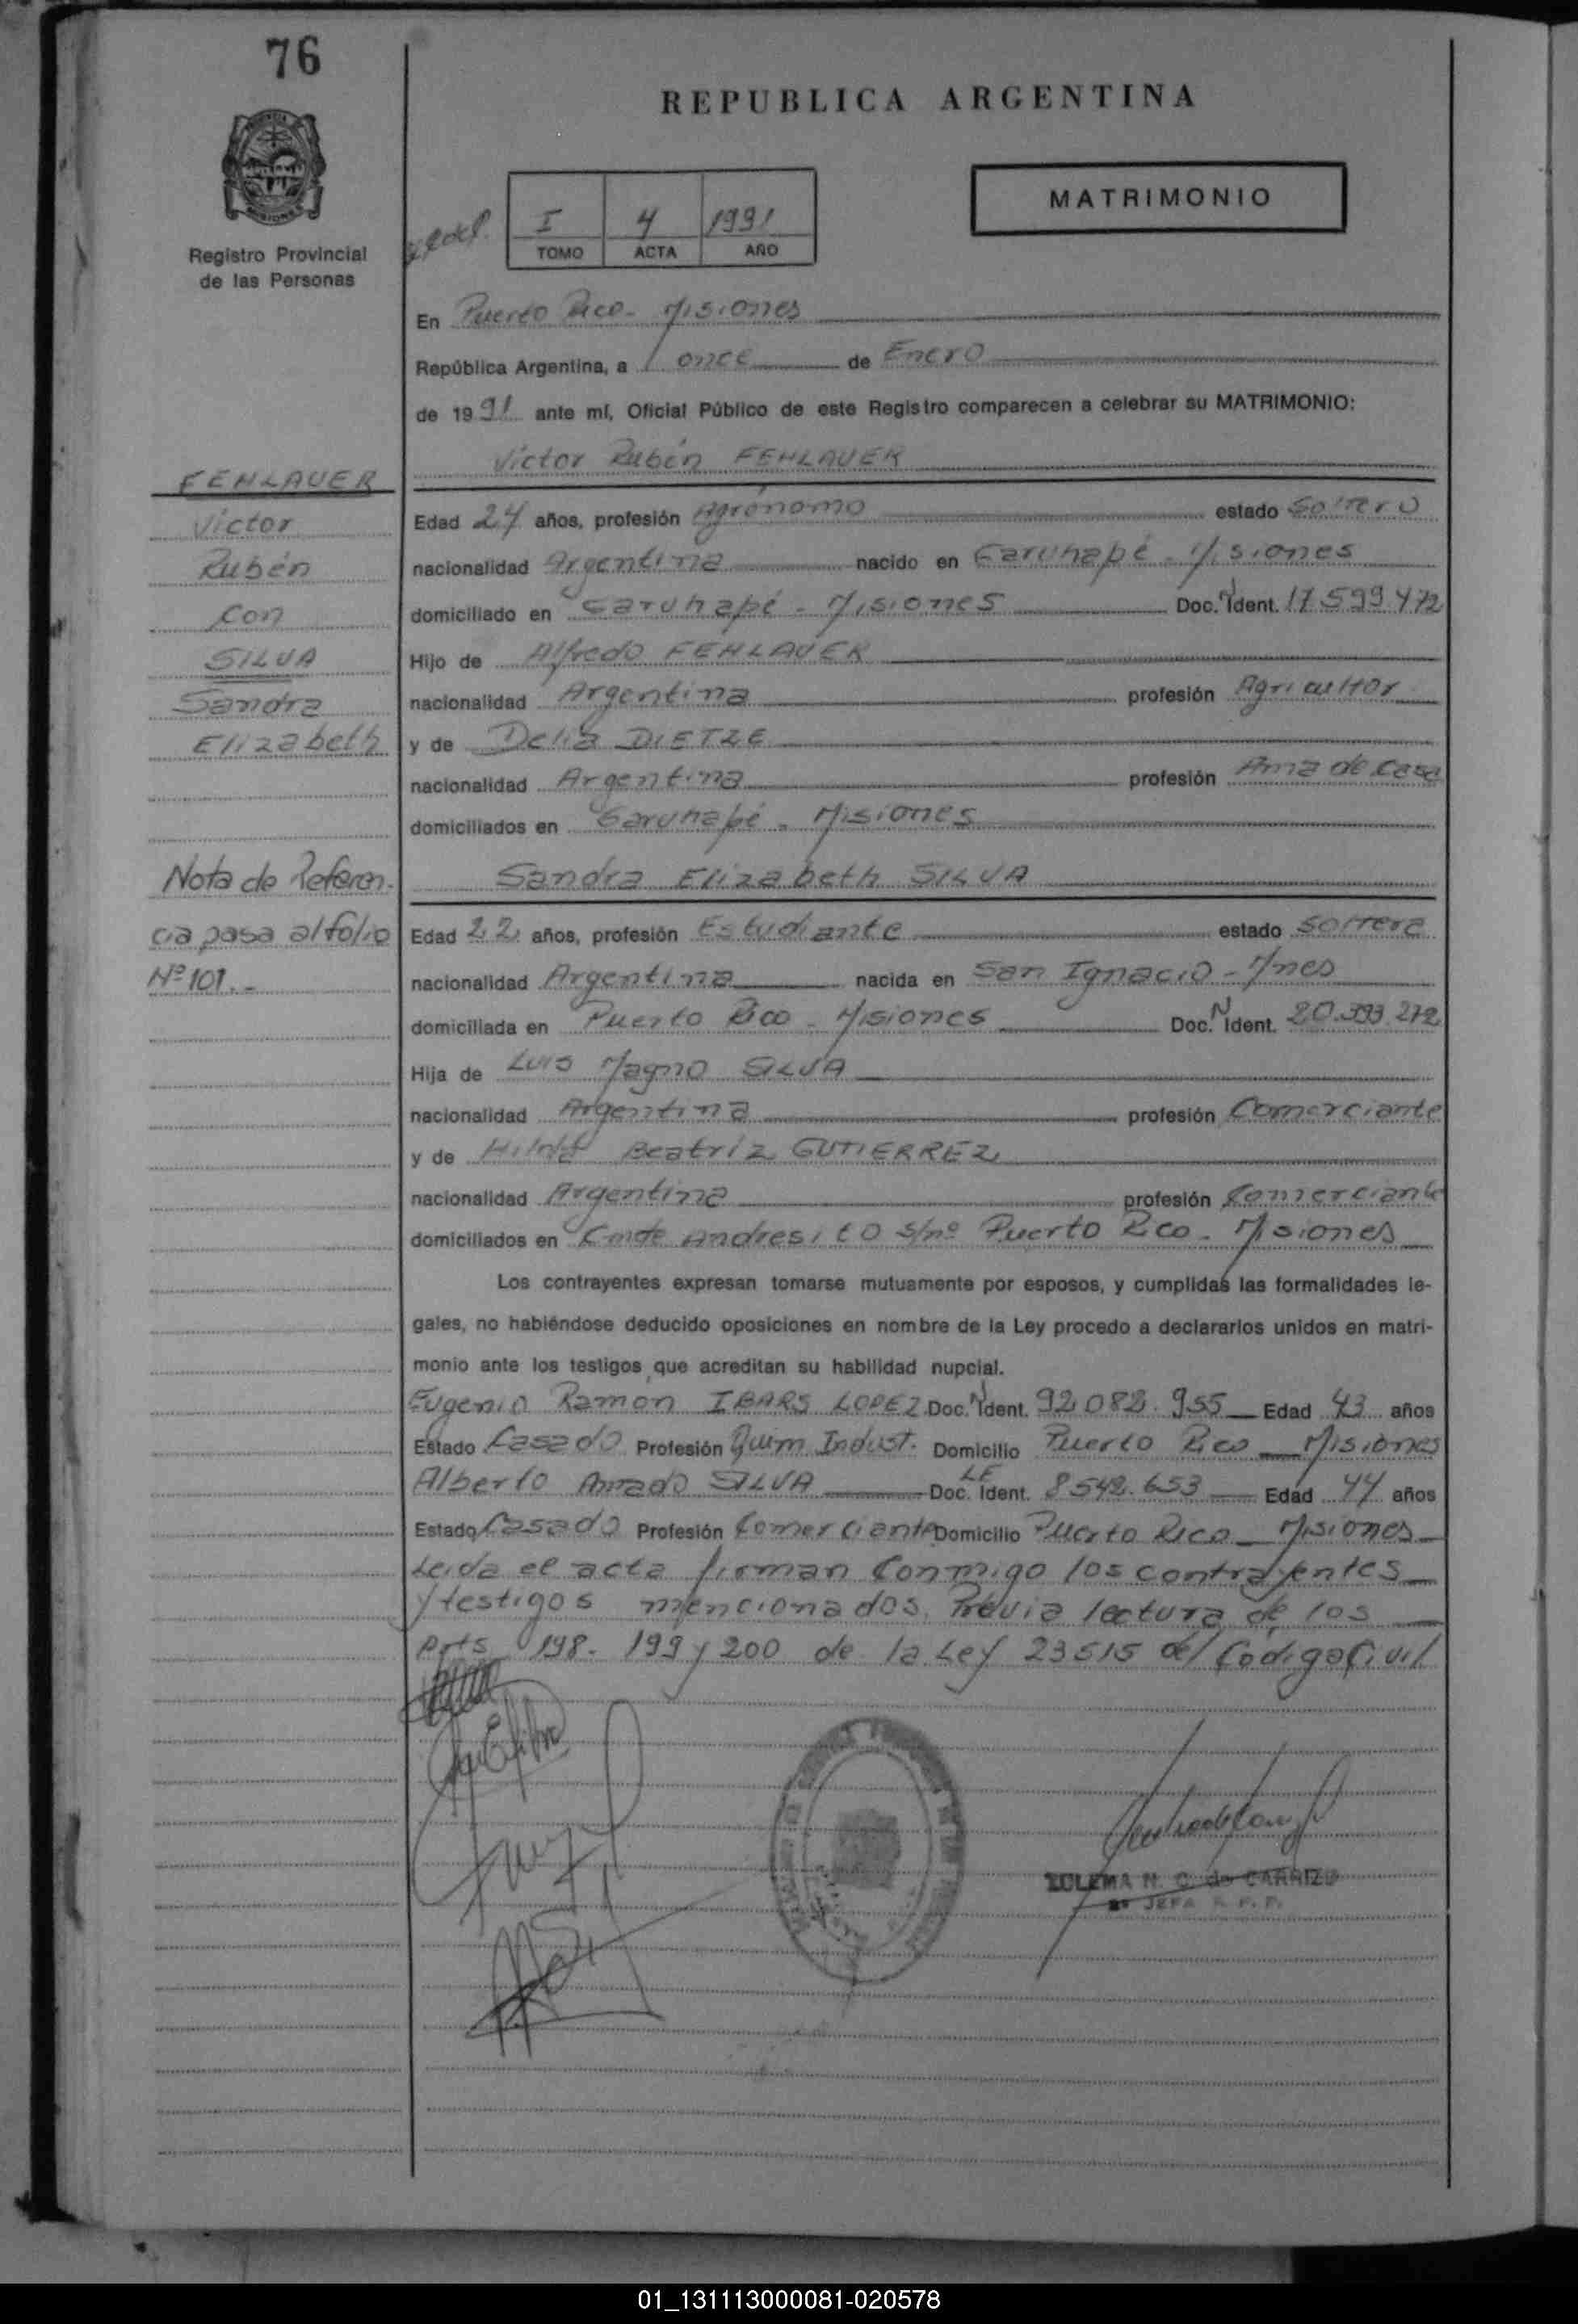 76
REPUBLICA ARGENTINA
MATRIMONIO
Registro Provincial
de las Personas
I 4 1991
TOMO ACTA AÑO
En Puerto Rico - Misiones
República Argentina, a once de Enero
de 1991 ante mí, Oficial Público de este Registro comparecen a celebrar su MATRIMONIO:
Víctor Rubén FEHLAUER
FEHLAUER
Víctor
Rubén
con
SILVA
Sandra
Elizabeth
Edad 24 años, profesión Agrónomo estado Soltero
nacionalidad Argentina nacido en Garuhapé - Misiones
domiciliado en Garuhapé - Misiones Doc. N Ident. 17.599.472
Hijo de Alfredo FEHLAUER
nacionalidad Argentina profesión Agricultor
y de Delia DIETZE
nacionalidad Argentina profesión Ama de Casa
domiciliados en Garuhapé - Misiones
Sandra Elizabeth SILVA
Nota de Referen-
cia pasa al folio
Nº 101.-
Edad 22 años, profesión Estudiante estado soltera
nacionalidad Argentina nacida en San Ignacio - Mnes
domiciliada en Puerto Rico - Misiones Doc. N Ident. 20.393.272
Hija de Luis Magno SILVA
nacionalidad Argentina profesión Comerciante
y de Hilda Beatriz GUTIERREZ
nacionalidad Argentina profesión Comerciante
domiciliados en Cmdte Andresito s/nº Puerto Rico - Misiones
Los contrayentes expresan tomarse mutuamente por esposos, y cumplidas las formalidades le-
gales, no habiéndose deducido oposiciones en nombre de la Ley procedo a declararlos unidos en matri-
monio ante los testigos que acreditan su habilidad nupcial.
Eugenio Ramon IBARS LOPEZ Doc. N Ident. 92.082.955 Edad 43 años
Estado Casado Profesión Quim Indust. Domicilio Puerto Rico - Misiones
Alberto Amado SILVA Doc. LE Ident. 8542.653 Edad 44 años
Estado Casado Profesión Comerciante Domicilio Puerto Rico - Misiones
Leída el acta firman Conmigo los contrayentes
y testigos mencionados. Previa lectura de los
Arts 198 - 199 y 200 de la Ley 23515 del Código Civil
ZULEMA N. C. de CARRIZO
JEFA R. P. P.
01_131113000081-020578